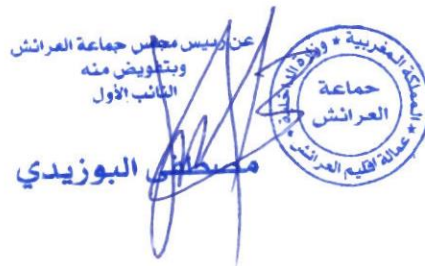 عن رئيس مجلس جماعة العرائش
وبتفويض منه
النائب الأول
مصطفى البوزيدي
المملكة المغربية * وزارة الداخلية *
عمالة اقليم العرائش
جماعة
العرائش